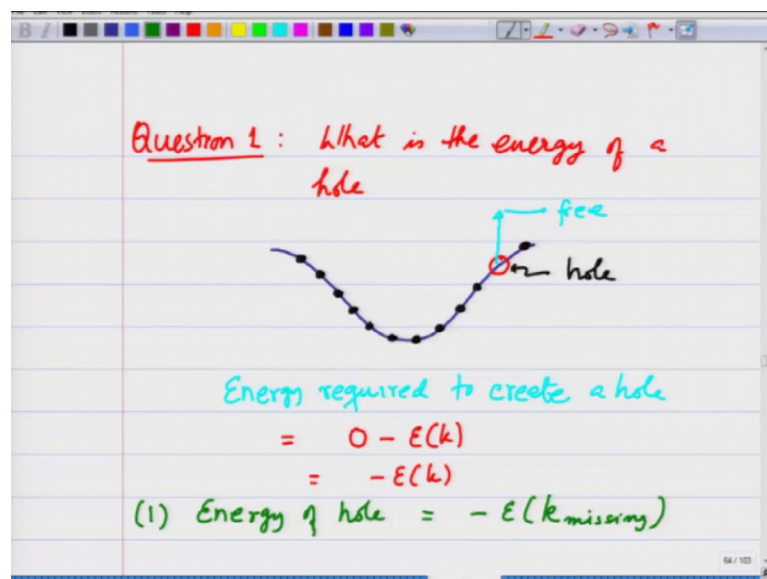 Question 1 : What is the energy of a
hole
free
hole
Energy required to create a hole
= 0 - ε(k)
= - ε(k)
(1) Energy of hole = - ε(k missing)
64 / 103